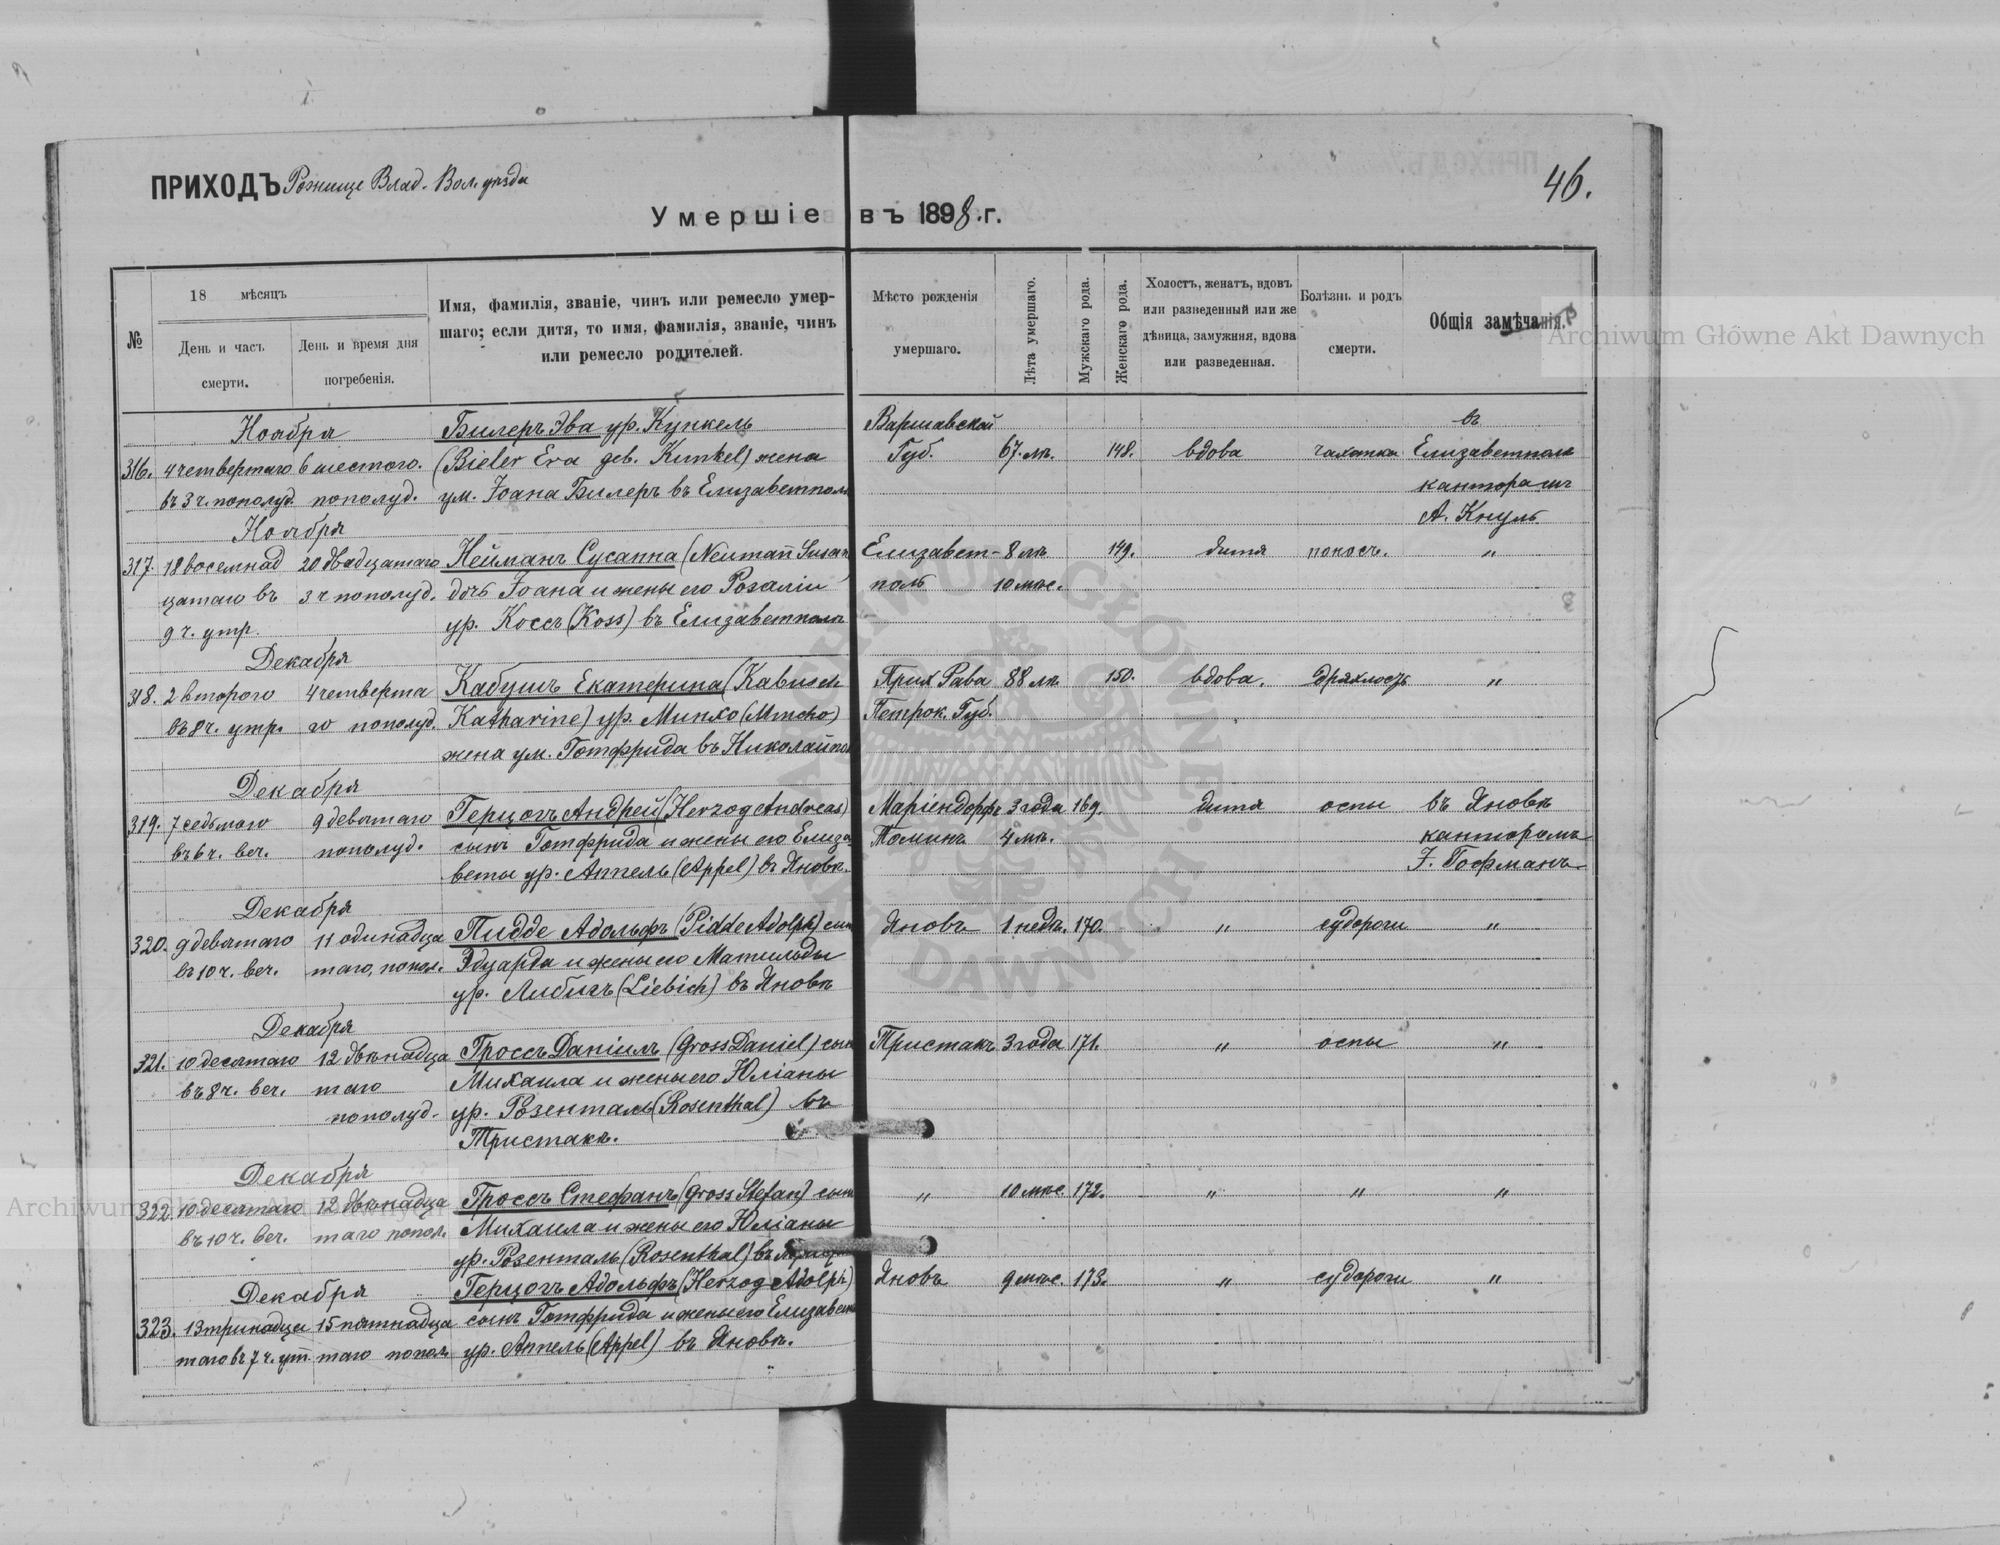 ПРИХОДЪ Рожище Влад. Вол. уѣзда
46.
Умершіе въ 1898.г.
№
18 мѣсяцъ
День и часъ смерти.
День и время дня погребенія.
Имя, фамилія, званіе, чинъ или ремесло умер-
шаго; если дитя, то имя, фамилія, званіе, чинъ
или ремесло родителей.
Мѣсто рожденія
умершаго.
Лѣта умершаго.
Мужскаго рода.
Женскаго рода.
Холостъ, женатъ, вдовъ
или разведенный или же
дѣвица, замужняя, вдова
или разведенная.
Болѣзнь и родъ
смерти.
Общія замѣчанія.
Archiwum Główne Akt Dawnych
Ноября Билеръ Эва ур. Кункель Варшавской въ
316. 4 четвертаго 6 шестого. (Bieler Eva дев. Kunkel) жена Губ. 67. лѣ. 148. вдова чахотка Елизаветполѣ
въ 3 ч. пополуд. пополуд. ум. Іоана Билеръ въ Елизаветполѣ канторомъ
Ноября А. Кнуль
317. 18 восемнад 20 двадцатаго Нейманъ Сусанна (Neumann Susan Елизавет- 8 лѣ. 149. дитя поносъ. "
цатаго въ 3 ч пополуд. дочь Іоана и жены его Розаліи поль 10 мѣс.
9 ч. утр. ур. Коссъ (Koss) въ Елизаветполѣ
Декабря
318. 2 второго 4 четверта Кабушъ Екатерина (Kabusch Прих Рава 88 лѣ. 150. вдова. дряхлость "
въ 8 ч. утр. го пополуд. Katharine) ур. Минхо (Mincho) Петрок. Губ.
жена ум. Готфрида въ Николайпол
Декабря
319. 7 седьмого 9 девятаго Герцогъ Андрей (Herzog Andreas) Маріендорфъ 3 года 169. дитя оспы въ Яновкѣ
въ 6 ч. веч. пополуд. сынъ Готфрида и жены его Елиза Томинъ 4 мѣ. канторомъ
веты ур. Аппель (Appel) въ Яновк. Г. Гофманъ
Декабря
320. 9 девятаго 11 одинадца Пидде Адольфъ (Pidde Adolph) сын Яновъ 1 недѣ. 170. " судороги "
въ 10 ч. веч. таго, попол. Эдуарда и жены его Матильды
ур. Либигъ (Liebich) въ Яновкѣ
Декабря
321. 10 десятаго 12 двѣнадца Гроссъ Даніилъ (Gross Daniel) сын Тристакъ 3 года 171. " оспы "
въ 8 ч. веч. таго Михаила и жены его Юліаны
пополуд. ур. Розенталь (Rosenthal) въ
Тристакѣ.
Декабря
322 10 десятаго 12 двѣнадца Гроссъ Стефанъ (Gross Stefan) сын " 10 мѣс. 172. " " "
въ 10 ч. веч. таго попол. Михаила и жены его Юліаны
ур. Розенталь (Rosenthal) въ
Декабря Герцогъ Адольфъ (Herzog Adolph) Яновъ 9 мѣс. 173. " судороги "
323. 13 тринадца 15 пятнадца сынъ Готфрида и жены его Елизавет
таго въ 7 ч. утр. таго попол. ур. Аппель (Appel) въ Яновк.
Archiwum Główne Akt Dawnych